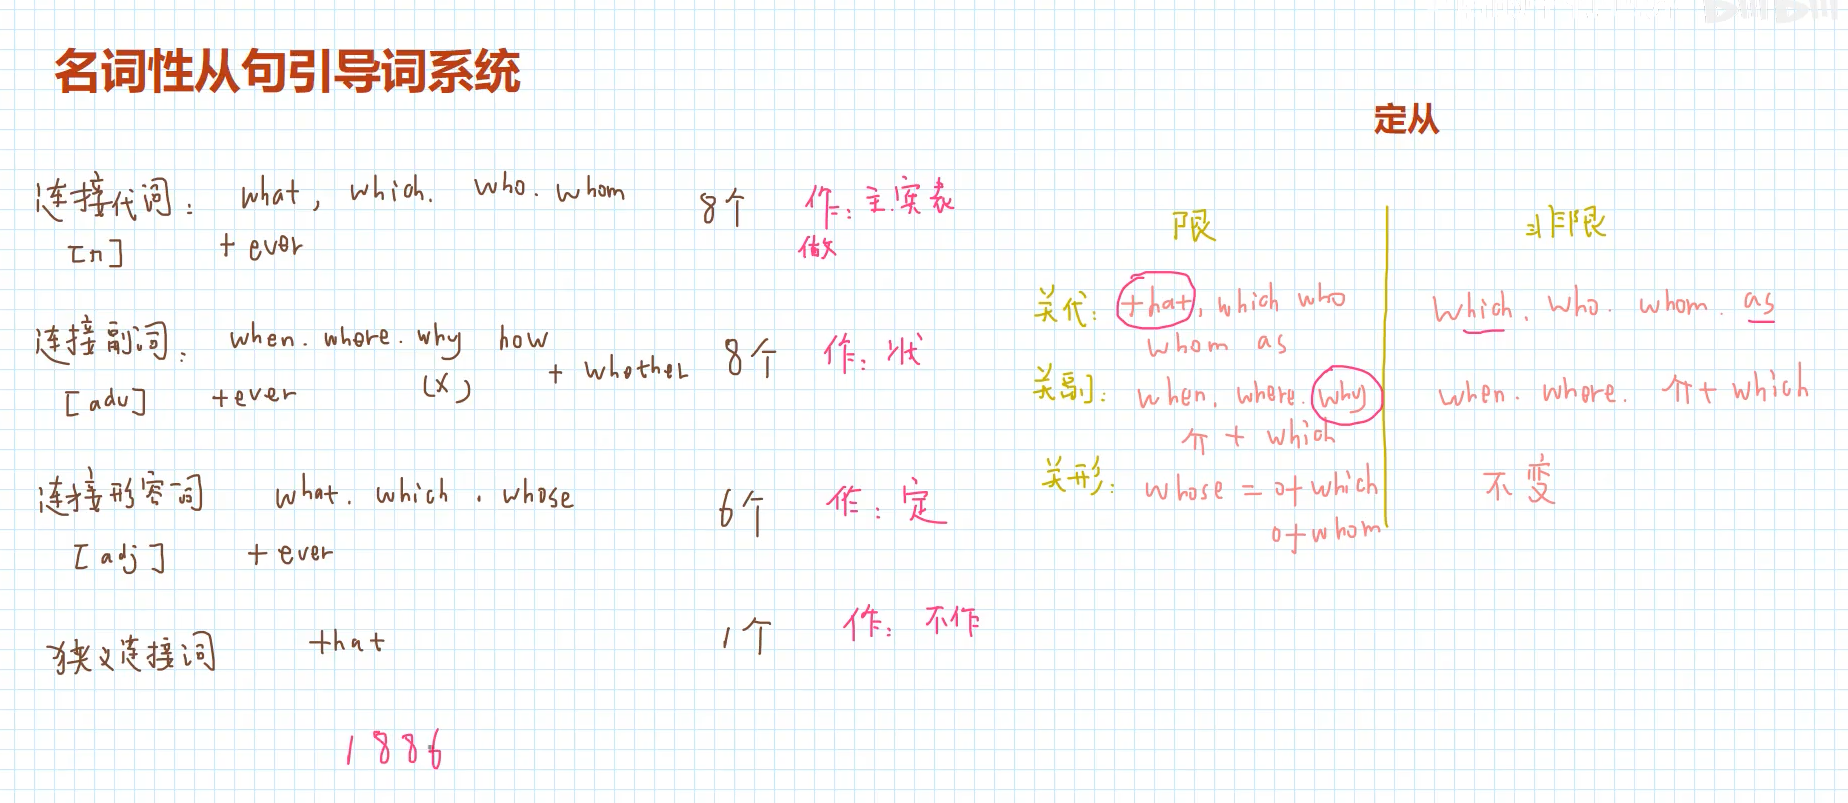 名词性从句引导词系统
连接代词: what, which. who. whom 8个 作: 主.宾表
[n] + ever 做
连接副词: when. where. why how + whether 8个 作: 状
[adv] +ever (x)
连接形容词 what. which. whose 6个 作: 定
[adj] + ever
狭义连接词 that 1个 作: 不作
1886
定从
限 非限
关代: that, which who which. who. whom. as
whom as
关副: when. where. why when. where. 介+ which
介 + which
关形: whose = of which 不变
of whom